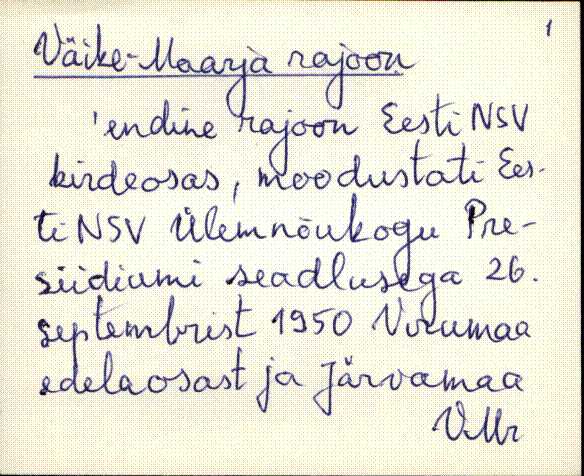 1
Väike-Maarja rajoon
'endine rajoon Eesti NSV
kirdeosas, moodustati Ees-
ti NSV Ülemnõukogu Pre-
siidiumi seadlusega 26.
septembrist 1950 Virumaa
edelaosast ja Järvamaa
V.Mr